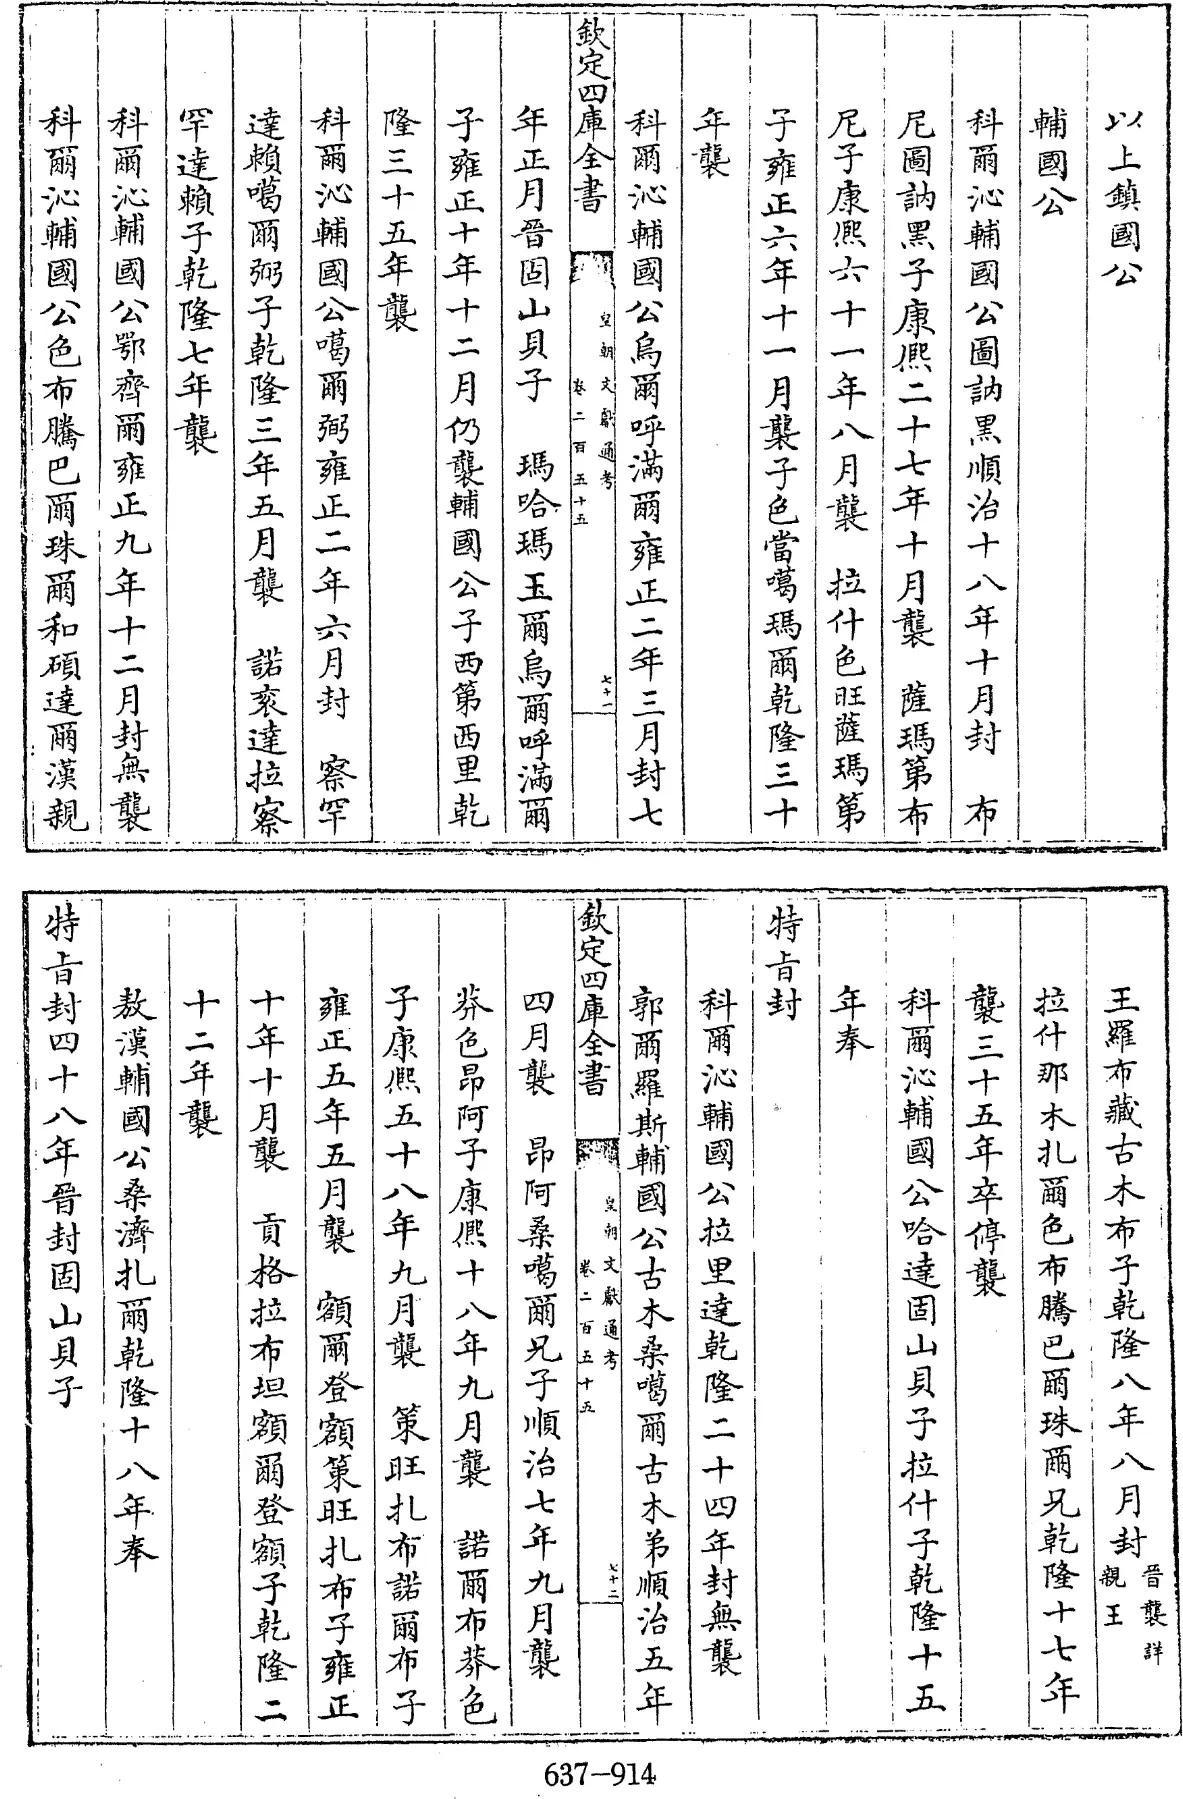 以上鎮國公
輔國公
科爾沁輔國公圖訥黑順治十八年十月封　布
尼圖訥黑子康熙二十七年十月襲　薩瑪第布
尼子康熙六十一年八月襲　拉什色旺薩瑪第
子雍正六年十一月襲子色當噶瑪爾乾隆三十
年襲
科爾沁輔國公烏爾呼滿爾雍正二年三月封七
欽定四庫全書
皇朝文獻通考
卷二百五十五
七十一
年正月晉固山貝子　瑪哈瑪玉爾烏爾呼滿爾
子雍正十年十二月仍襲輔國公子西第西里乾
隆三十五年襲
科爾沁輔國公噶爾弼雍正二年六月封　察罕
達賴噶爾弼子乾隆三年五月襲　諾衮達拉察
罕達賴子乾隆七年襲
科爾沁輔國公鄂齊爾雍正九年十二月封無襲
科爾沁輔國公色布騰巴爾珠爾和碩達爾漢親
王羅布藏古木布子乾隆八年八月封晉襲詳親王
拉什那木扎爾色布騰巴爾珠爾兄乾隆十七年
襲三十五年卒停襲
科爾沁輔國公哈達固山貝子拉什子乾隆十五
年奉
特旨封
科爾沁輔國公拉里達乾隆二十四年封無襲
郭爾羅斯輔國公古木桑噶爾古木弟順治五年
欽定四庫全書
皇朝文獻通考
卷二百五十五
七十二
四月襲　昂阿桑噶爾兄子順治七年九月襲
莽色昂阿子康熙十八年九月襲　諾爾布莽色
子康熙五十八年九月襲　策旺扎布諾爾布子
雍正五年五月襲　額爾登額策旺扎布子雍正
十年十月襲　貢格拉布坦額爾登額子乾隆二
十二年襲
敖漢輔國公桑濟扎爾乾隆十八年奉
特旨封四十八年晉封固山貝子
637-914